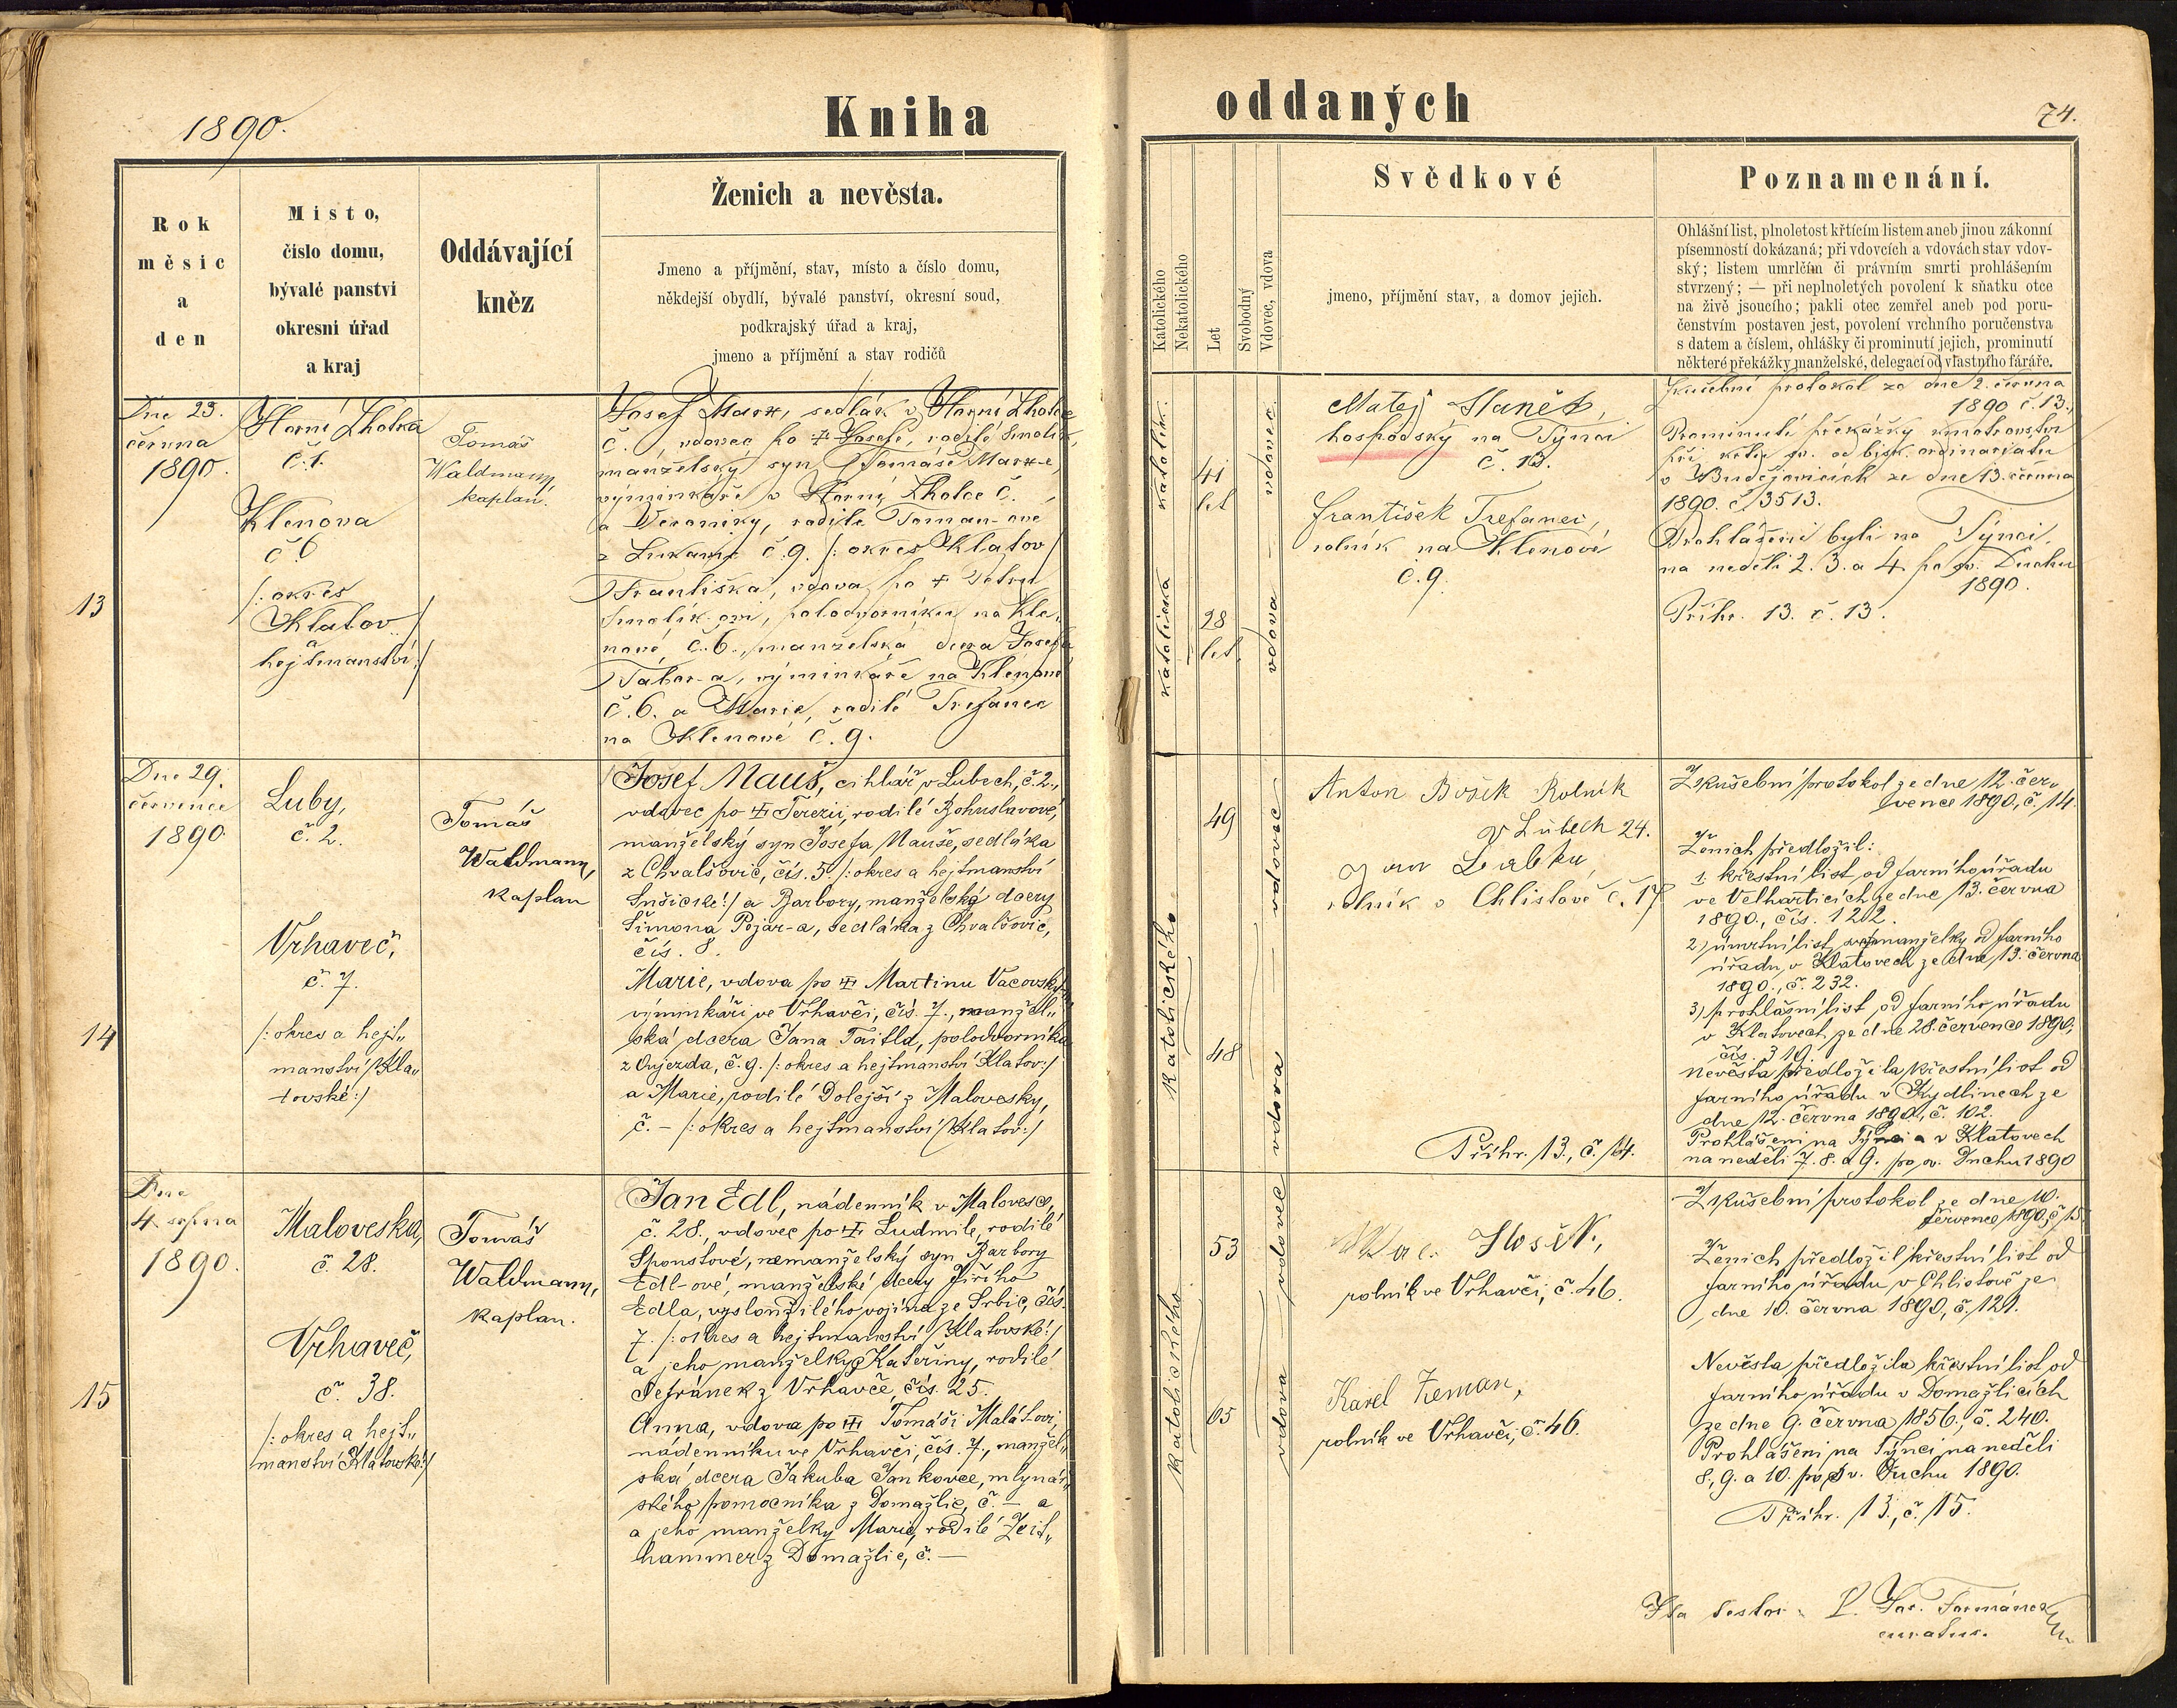 1890.
Kniha
oddaných
74.
Rok
měsíc
a
den
Místo,
číslo domu,
bývalé panství
okresní úřad
a kraj
Oddávající
kněz
Ženich a nevěsta.
Jmeno a příjmění, stav, místo a číslo domu,
někdejší obydlí, bývalé panství, okresní soud,
podkrajský úřad a kraj,
jmeno a příjmění a stav rodičů
Katolického
Nekatolického
Let
Svobodný
Vdovec, vdova
Svědkové
jmeno, příjmění stav, a domov jejich.
Poznamenání.
Ohlášní list, plnoletost křtícím listem aneb jinou zákonní
písemností dokázaná; při vdovcích a vdovách stav vdov-
ský; listem umrlčím či právním smrti prohlášením
stvrzený; — při neplnoletých povolení k sňatku otce
na živě jsoucího; pakli otec zemřel aneb pod poru-
čenstvím postaven jest, povolení vrchního poručenstva
s datem a číslem, ohlášky či prominutí jejich, prominutí
některé překážky manželské, delegací od vlastního fáráře.
13
Dne 23.
června
1890.
Horní Lhotka
č. 1.
Klenova
č. 6
/: okres
Klatov
a
hejtmanství :/
Tomáš
Waldmann,
kaplan.
Josef Marx, sedlák v Horní Lhotce
č. vdovec po † Josefě, rodilé Smolík,
manželský syn Tomáše Marx-e,
výminkáře v Horní Lholce č.
a Veroniky, rodilé Toman-ové
z č. 9. /: okres Klatov/
Františka, vdova po † Petru
Smolík-ovi, polodvorníku na Kle-
nové, č. 6., manželská dcera Josefa
Tabor-a, výminkáře na Klenové
č. 6. a Marie, rodilé Trefanec
na Klenové č. 9.
katolík.
katolička
41
let
28
let.
vdovec
vdova
Matěj Staněk,
hospodský na Týnci
č. 13.
František Trefanec,
rolník na Klenové
č. 9.
Zkušební protokol ze dne 2. června
1890 č. 13.
Prominutí překážky kmotrovství
při křtu sv. od bisk. ordinariatu
v Budějovicích ze dne 13. června
1890. č. 3513.
Prohlášeni byli na Týnci,
na neděli 2. 3. a 4. po sv. Duchu
1890.
Příhr. 13. č. 13.
14
Dne 29.
července
1890
Luby,
č. 2.
Vrhaveč,
č. 7.
/: okres a hejt„
manství Kla„
tovské :/
Tomáš
Waldmann,
kaplan
Josef Mauš, cihlář v Lubech, č. 2.,
vdovec po † Terezii, rodilé Bohuslavové,
manželský syn Josefa Mauše, sedláka
z Chvalšovic, čís. 5. /: okres a hejtmanství
Sušické :/ a Barbory, manželské dcery
Šimona Pojar-a, sedláka z Chvalšovic,
čís. 8.
Marie, vdova po † Martinu Vacovský,
výminkáři ve Vrhavči, čís. 7., manžel„
ská dcera Jana Taitla, polodvorníka
z Oujezda, č. 9. /: okres a hejtmanství Klatov :/
a Marie, rodilé Dolejší z Malovesky,
č. — /: okres a hejtmanství Klatov :/
katolického
49
48
vdovec
vdova
Anton Bošek Rolník
v Lubech 24.
Jan
rolník v Chlistově č. 17
Příhr. 13., č. 14.
Zkušební protokol ze dne 12. čer„
vence 1890, č. 14.
Ženich předložil:
1. křestní list od farního úřadu
ve Velharticích ze dne 13. června
1890., čís. 122.
2) úmrtní list manželky od farního
úřadu v Klatovech ze dne 13. června
1890., č. 232.
3) prohlášní list od farního úřadu
v Klatovech ze dne 28. července 1890,
čís. 319.
Nevěsta předložila křestní list od
farního úřadu v Kydlinech ze
dne 12. června 1890, č. 102.
Prohlášeni na Týnci a v Klatovech
na neděli 7. 8. a 9. po sv. Duchu 1890
15
Dne
4. srpna
1890.
Maloveska,
č. 28.
Vrhaveč,
č. 38.
/: okres a hejt„
manství Klatovské :/
Tomáš
Waldmann,
kaplan.
Jan Edl, nádenník v Malovesce,
č. 28., vdovec po † Ludmile, rodilé
Sponstové, nemanželský syn Barbory
Edl-ové, manželské dcery Jiřího
Edla, vysloužilého vojína ze Srbic, čís.
7. /: okres a hejtmanství Klatovské :/
a jeho manželky Kateřiny, rodilé
Šefránek z Vrhavče, čís. 25.
Anna, vdova po † Tomáši Malátovi,
nádenníku ve Vrhavči, čís. 7., manžel„
ská dcera Jakuba Jankovce, mlynář„
ského pomocníka z Domažlic, č. — a
a jeho manželky Marie, rodilé Zeit„
hammer z Domažlic, č. —
katolického
53
65
vdovec
vdova
rolník ve Vrhavči, č. 46.
Karel Zeman,
rolník ve Vrhavči, č. 46.
Zkušební protokol ze dne 10.
července 1890, č. 15
Ženich předložil křestní list od
farního úřadu v Chlistově ze
dne 10. června 1890, č. 121.
Nevěsta předložila křestní list od
farního úřadu v Domažlicích
ze dne 9. června 1856, č. 240.
Prohlášeni na Týnci na neděli
8., 9. a 10. po sv. Duchu 1890.
Příhr. 13., č. 15.
Ita testor P. Formánek
curatus.